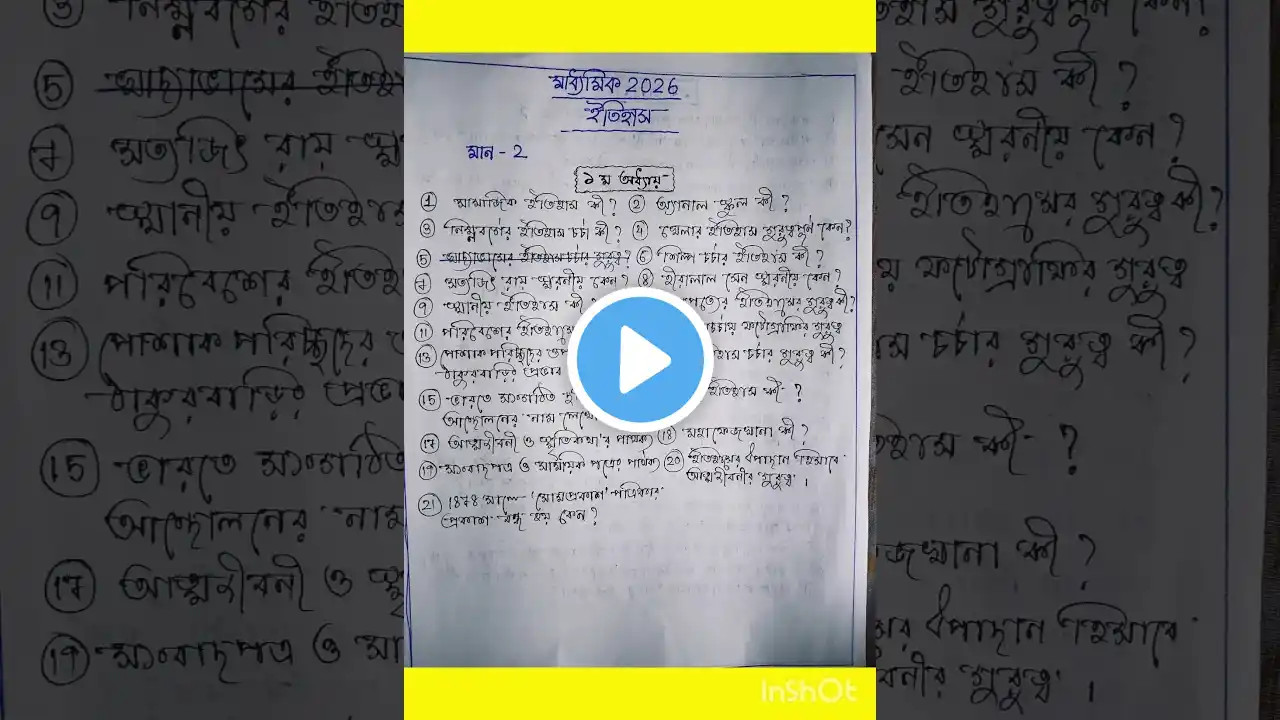 মাধ্যমিক 2026
ইতিহাস
মান - 2
১ম অধ্যায়
① সামাজিক ইতিহাস কী? ② অ্যানাল স্কুল কী?
③ নিম্নবর্গের ইতিহাস চর্চা কী? ④ খেলার ইতিহাস গুরুত্বপূর্ণ কেন?
⑤ ইতিহাস চর্চার গুরুত্ব? ⑥ শিল্প চর্চার ইতিহাস কী?
⑦ সত্যজিৎ রায় স্মরনীয় কেন? ⑧ হীরালাল সেন স্মরনীয় কেন?
⑨ স্থানীয় ইতিহাস কী? ইতিহাসের গুরুত্ব কী?
⑪ পরিবেশের ইতিহাস ফটোগ্রাফির গুরুত্ব
⑬ পোশাক পরিচ্ছদের চর্চার গুরুত্ব কী?
ঠাকুরবাড়ির প্রভাব
⑮ ভারতে সংগঠিত ইতিহাস কী?
আন্দোলনের নাম লেখো
⑰ আত্মজীবনী ও স্মৃতিকথা'র পার্থক্য ⑱ কী?
⑲ সংবাদপত্র ও সাময়িক পত্রের পার্থক্য ⑳ ইতিহাসের উপাদান হিসাবে
আত্মজীবনীর গুরুত্ব।
㉑ 1878 সালে 'সোমপ্রকাশ' পত্রিকার
প্রকাশ বন্ধ হয় কেন?
InShOt